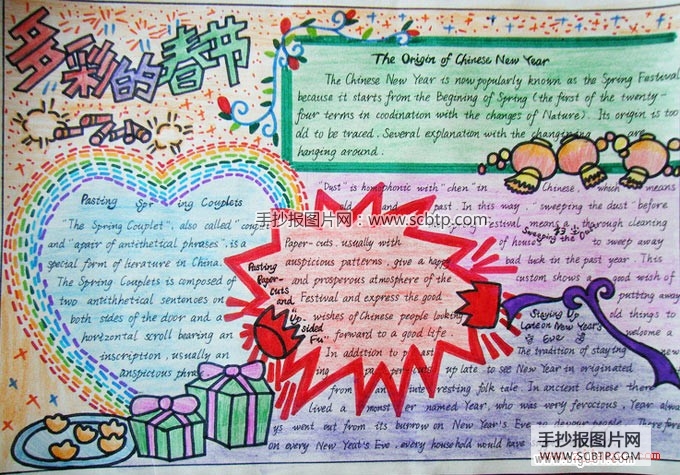 多彩的春节
The Origin of Chinese New Year
The Chinese New Year is now popularly known as the Spring Festival
because it starts from the Begining of Spring (the first of the twenty-
four terms in coodination with the changes of Nature). Its origin is too
old to be traced. Several explanation with the are
hanging around.
Pasting Spr ing Couplets
"The Spring Couplet", also called "coup
and "apair of antithetical phrases", is a
special form of literature in China.
The Spring Couplets is composed of
two antithhetical sentences on
both sides of the door and a
horizontal scroll bearing an
inscription, usually an
anspictous phrase
手抄报图片网：www.scbtp.com
Pasting
Paper-
cuts
and
Up
sided
Fu"
Paper-cuts, usually with
auspicious patterns, give a happy
and prosperous atmosphere of the
Festival and express the good
wishes of Chinese people looking
forward to a good life.
In addition to past
ing paper-cuts
"Dust" is homophonic with "chen" in Chinese, which means
old and past. In this way, "sweeping the dust" before
ing Festival means a thorough cleaning
of house to sweep away
bad luck in the past year. This
custom shows a good wish of
putting away
old things to
welcome a
Sweeping the Dust
Staying Up
Lane on New Year's
Eve
The tradition of staying
up late to see New Year in originated
from an resting folk tale. In ancient Chinese there
lived a monst er named Year, who was very ferocious, Year alway
ys went out from its burrow on New Year's Eve to devour people. Therefore
on every New Year's Eve, every household would have
手抄报图片网
WWW.SCBTP.COM